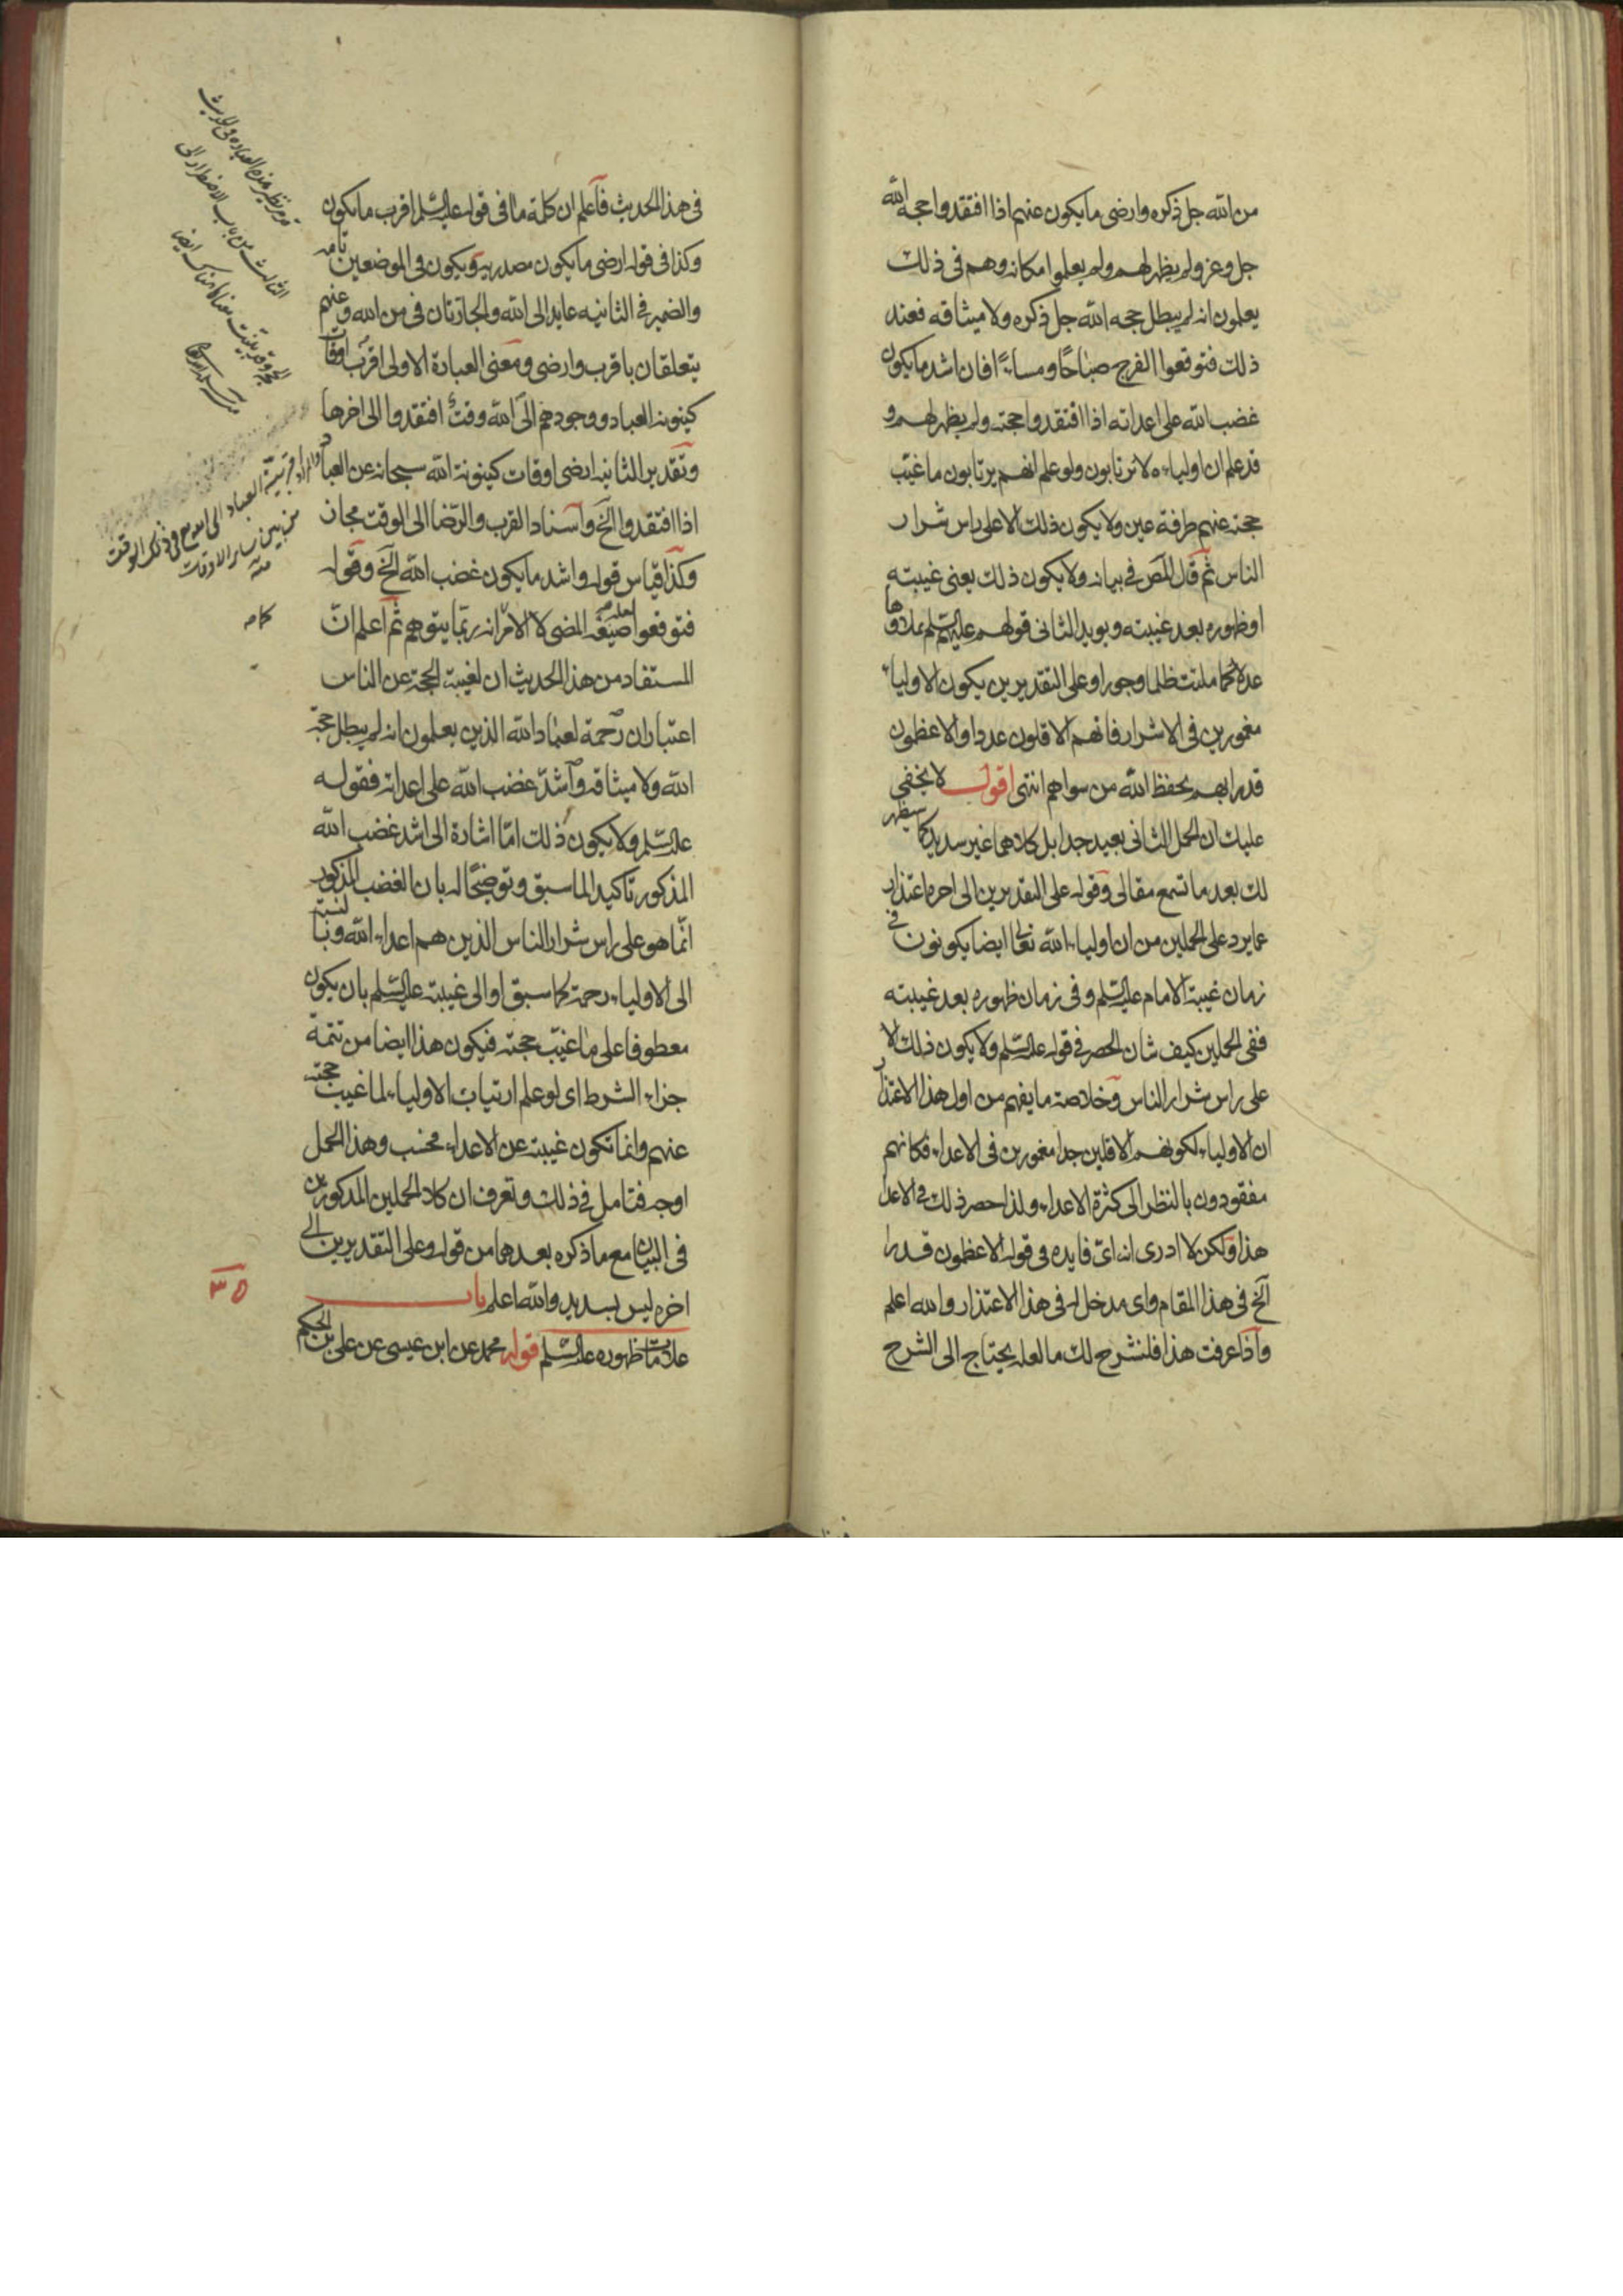 من الله جل ذكره وارضى ما يكون عنهم اذا افتقدوا حجه الله
جل وعز ولم يظهر لهم ولم يعلموا مكانه وهم فى ذلك
يعلمون انه لم يبطل حجه الله جل ذكره ولا ميثاقه فعند
ذلك فتوقعوا الفرج صباحًا ومساءً فان اشد ما يكون
غضب الله على اعدائه اذا افتقدوا حجته ولم يظهر لهم و
قد علم ان اولياءه لا يرتابون ولو علم انهم يرتابون ما غيّب
حجته عنهم طرفة عين ولا يكون ذلك الا على راس شرار
الناس ثم قال المص فى بيانه ولا يكون ذلك يعنى غيبته
او ظهوره بعد غيبته ويويد الثانى قولهم عليهم السلم يملاوها
عدلا كما ملئت ظلما وجورا وعلى التقديرين يكون الاولياء
مغمورين فى الاشرار فانهم الاقلون عددا والاعظمون
قدرا بهم يحفظ الله من سواهم انتهى اقول لا يخفى
عليك ان الحمل الثانى بعيد جدا بل كلاهما غير سديد كما سيظهر
لك بعد ما تسمع مقالى وقوله على التقديرين الى اخره اعتذار
عما يرد على الحملين من ان اولياء الله تعالى ايضا يكونون فى
زمان غيبة الامام عليه السلم وفى زمان ظهوره بعد غيبته
ففى الحملين كيف شان الحصر فى قوله عليه السلم ولا يكون ذلك الا
على راس شرار الناس وخلاصة ما يفهم من اول هذا الاعتذار
ان الاولياء لكونهم الاقلين جدا مغمورين فى الاعداء فكانهم
مفقودون بالنظر الى كثرة الاعداء ولذا حصر ذلك فى الاعداء
هذا ولكن لا ادرى انه اىّ فايده فى قوله الاعظمون قدرا
الخ فى هذا المقام واى مدخل له فى هذا الاعتذار والله اعلم
واذا عرفت هذا فلنشرح لك ما لعله يحتاج الى الشرح
فى هذا الحديث فاعلم ان كلمة ما فى قوله عليه السلم اقرب ما يكون
وكذا فى قوله ارضى ما يكون مصدريه ويكون فى الموضعين تامه
والضمير فى الثانيه عايد الى الله والجارتان فى من الله وعنهم
يتعلقان باقرب وارضى ومعنى العبارة الاولى اقرب اوقات
كينونه العباد ووجودهم الى الله وقت افتقدوا الى اخرها
وتقدير الثانيه ارضى اوقات كينونة الله سبحانه عن العباد
اذا افتقدوا الخ واسناد القرب والرّضا الى الوقت مجاز
وكذا قياس قوله واشد ما يكون غضب الله الخ وقوله
فتوقعوا صيغه المضى لا الامر انه ربّما يتوهم ثم اعلم انّ
المستفاد من هذا الحديث ان لغيبة الحجة عن الناس
اعتباران رحمة لعباد الله الذين يعلمون انه لم يبطل حجة
الله ولا ميثاقه واشدّ غضب الله على اعدائه فقوله
عليه السلم ولا يكون ذلك امّا اشارة الى اشد غضب الله
المذكور تاكيدا لما سبق وتوضيحًا له بان الغضب المذكور
انّما هو على راس شرار الناس الذين هم اعداء الله وبالنسبة
الى الاولياء رحمة كما سبق او الى غيبته عليه السلم بان يكون
معطوفا على ما غيّب حجته فيكون هذا ايضا من تتمة
جزاء الشرط اى لو علم ارتياب الاولياء لما غيبت حجته
عنهم وانما تكون غيبته عن الاعداء فحسب وهذا الحمل
اوجه فتامل فى ذلك وتعرف ان كلا الحملين المذكورين
فى البيان مع ما ذكره بعدهما من قوله وعلى التقديرين الى
اخره ليس بسديد والله اعلم باب
علامات ظهوره عليه السلم قوله محمد عن ابن عيسى عن على بن الحكم
الثالث من باب الاضطرار الى
الحجه
والمراد قربية العباد الى الله فى ذلك الوقت
من بين ساير الاوقات
منه
٣٥